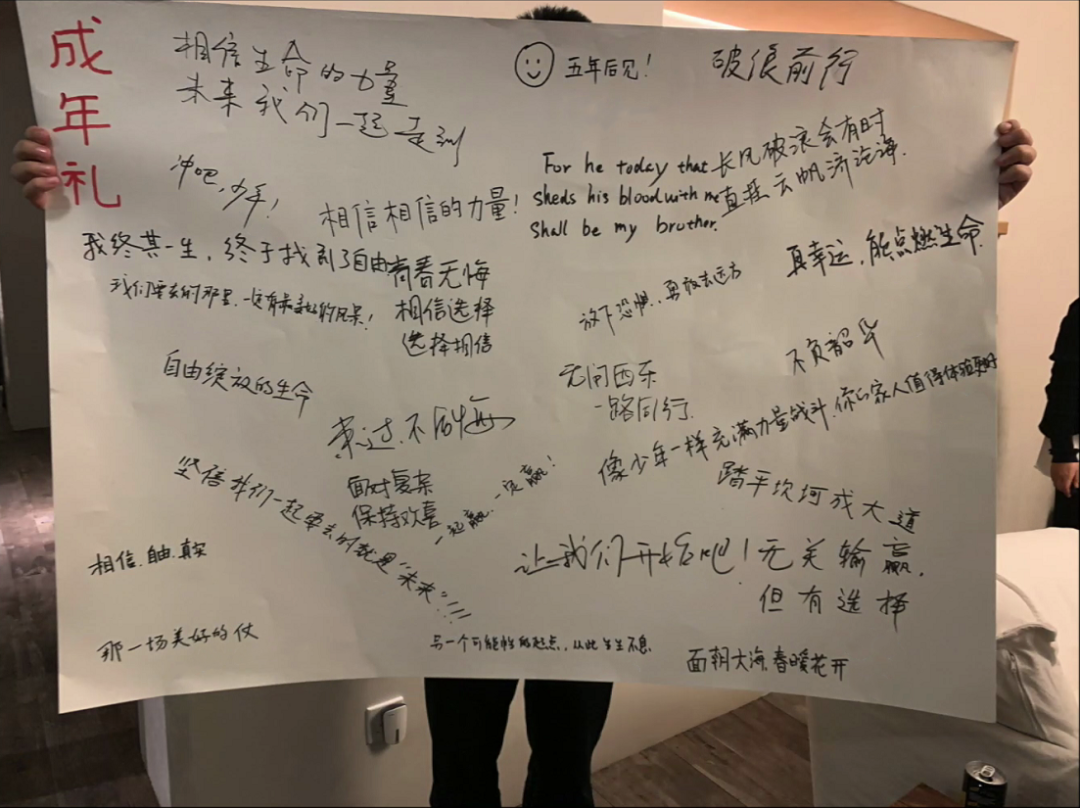 成年礼
相信生命的力量
未来我们一起走到
五年后见！
破浪前行
冲吧，少年！
相信相信的力量！
For he today that
sheds his blood with me
Shall be my bruther.
长风破浪会有时
直挂云帆济沧海.
我终其一生，终于找到了自由
青春无悔
相信选择
选择相信
我们要去的那里，一定有最好的风景！
放下恐惧，勇敢去远方
真幸运，能点燃生命.
自由绽放的生命
无问西东
一路同行.
不负韶华
来过、不后悔
像少年一样充满力量战斗，你的家人值得体验更好
面对复杂
保持欢喜
一起赢，一定赢！
坚信我们一起要去的就是“未来”!!!
踏平坎坷成大道
相信、自由、真实
让我们开始吧！无关输赢，
但有选择
那一场美好的仗
另一个可能性的起点，从此生生不息
面朝大海，春暖花开